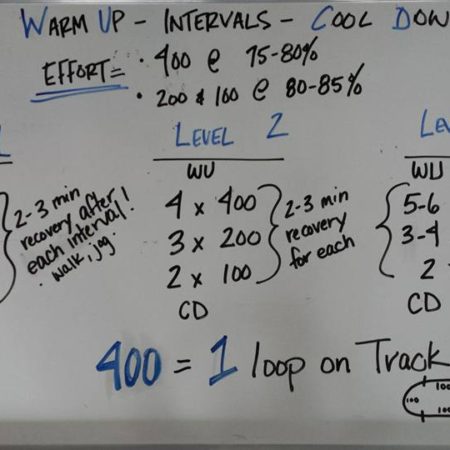 WARM UP - INTERVALS - COOL DOW
EFFORT= • 400 @ 75-80%
• 200 & 100 @ 80-85%
LEVEL 2
WU
4 x 400
3 x 200
2 x 100
CD
2-3 min
recovery
for each
2-3 min
recovery after
each interval!
• walk, jog.
LE
WU
5-6
3-4
2
CD
400 = 1 loop on Track
100
100
100